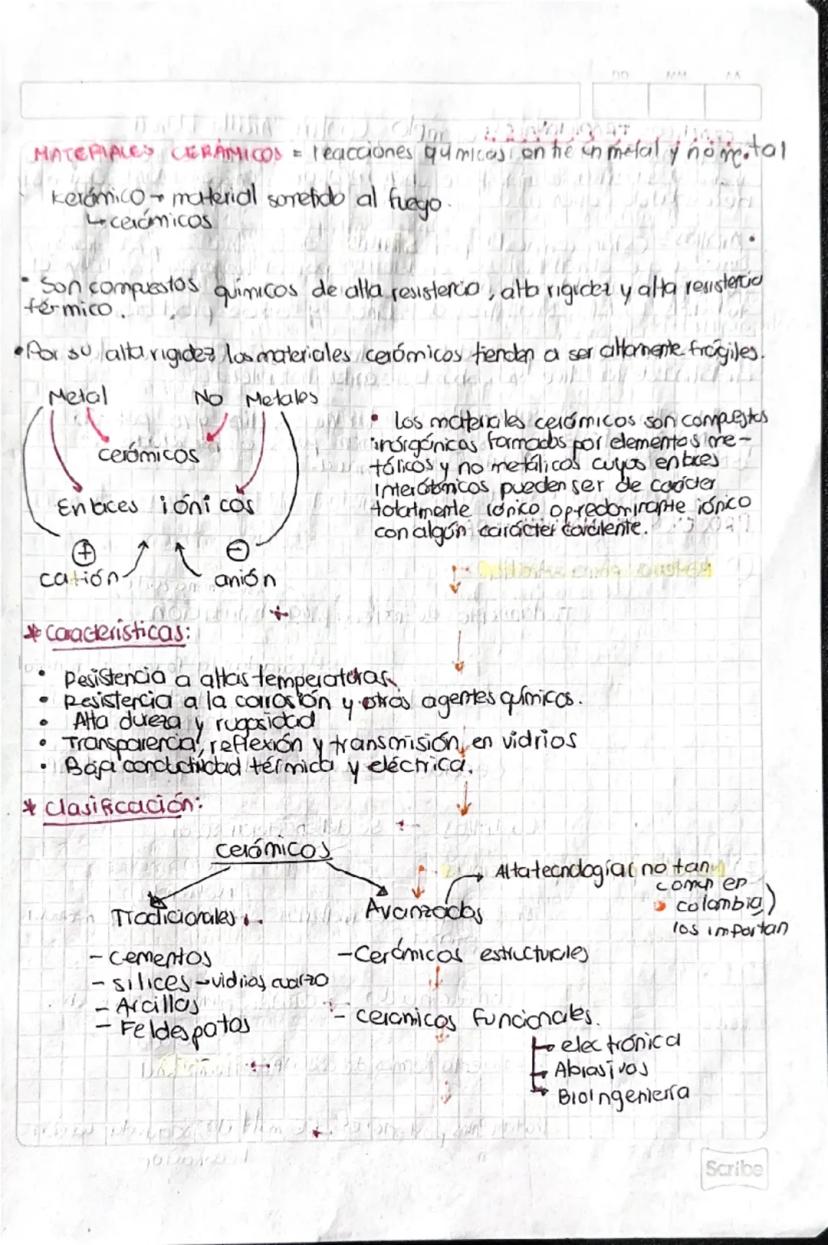 DD MM AA
MATERIALES CERÁMICOS = reacciones químicas entre un metal y no metal
Kerámico → material sometido al fuego.
↳ cerámicos
• Son compuestos químicos de alta resistencia, alta rigidez y alta resistencia
térmico.
• Por su alta rigidez los materiales cerámicos tienden a ser altamente frágiles.
Metal No Metales
cerámicos
Enlaces iónicos
⊕ ⊖
catión anión
• Los materiales cerámicos son compuestos
inórgánicos formados por elementos me-
tálicos y no metálicos cuyos enlaces
Interátomicos pueden ser de carácter
totalmente iónico o predominante iónico
con algún carácter covalente.
* Características:
• Resistencia a altas temperaturas
• Resistencia a la corrosión y otros agentes químicos.
• Alta dureza y rugosidad
• Transparencia, reflexión y transmisión en vidrios
• Baja conductividad térmica y eléctrica.
* Clasificación:
cerámicos
Tradicionales
- Cementos
- Sílices → vidrios cuarzo
- Arcillas
- Feldespatos
Avanzados → Alta tecnología (no tan
comun en
colombia)
los importan
- Cerámicos estructurales
- ceramicos funcionales.
→ electrónica
→ Abrasivos
→ BioIngenierra
Scribe